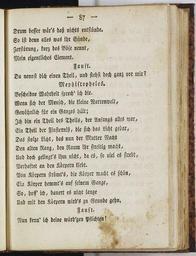 — 87 —
Drum besser wär's daß nichts entstünde.
So ist denn alles was ihr Sünde,
Zerstörung, kurz das Böse nennt,
Mein eigentliches Element.
Faust.
Du nennst dich einen Theil, und stehst doch ganz vor mir?
Mephistopheles.
Bescheidne Wahrheit sprech' ich dir.
Wenn sich der Mensch, die kleine Narrenwelt,
Gewöhnlich für ein Ganzes hält;
Ich bin ein Theil des Theils, der Anfangs alles war,
Ein Theil der Finsterniß, die sich das Licht gebar,
Das stolze Licht, das nun der Mutter Nacht
Den alten Rang, den Raum ihr streitig macht,
Und doch gelingt's ihm nicht, da es, so viel es strebt,
Verhaftet an den Körpern klebt.
Von Körpern strömt's, die Körper macht es schön,
Ein Körper hemmt's auf seinem Gange,
So, hoff' ich, dauert es nicht lange
Und mit den Körpern wird's zu Grunde gehn.
Faust.
Nun kenn' ich deine würd'gen Pflichten!